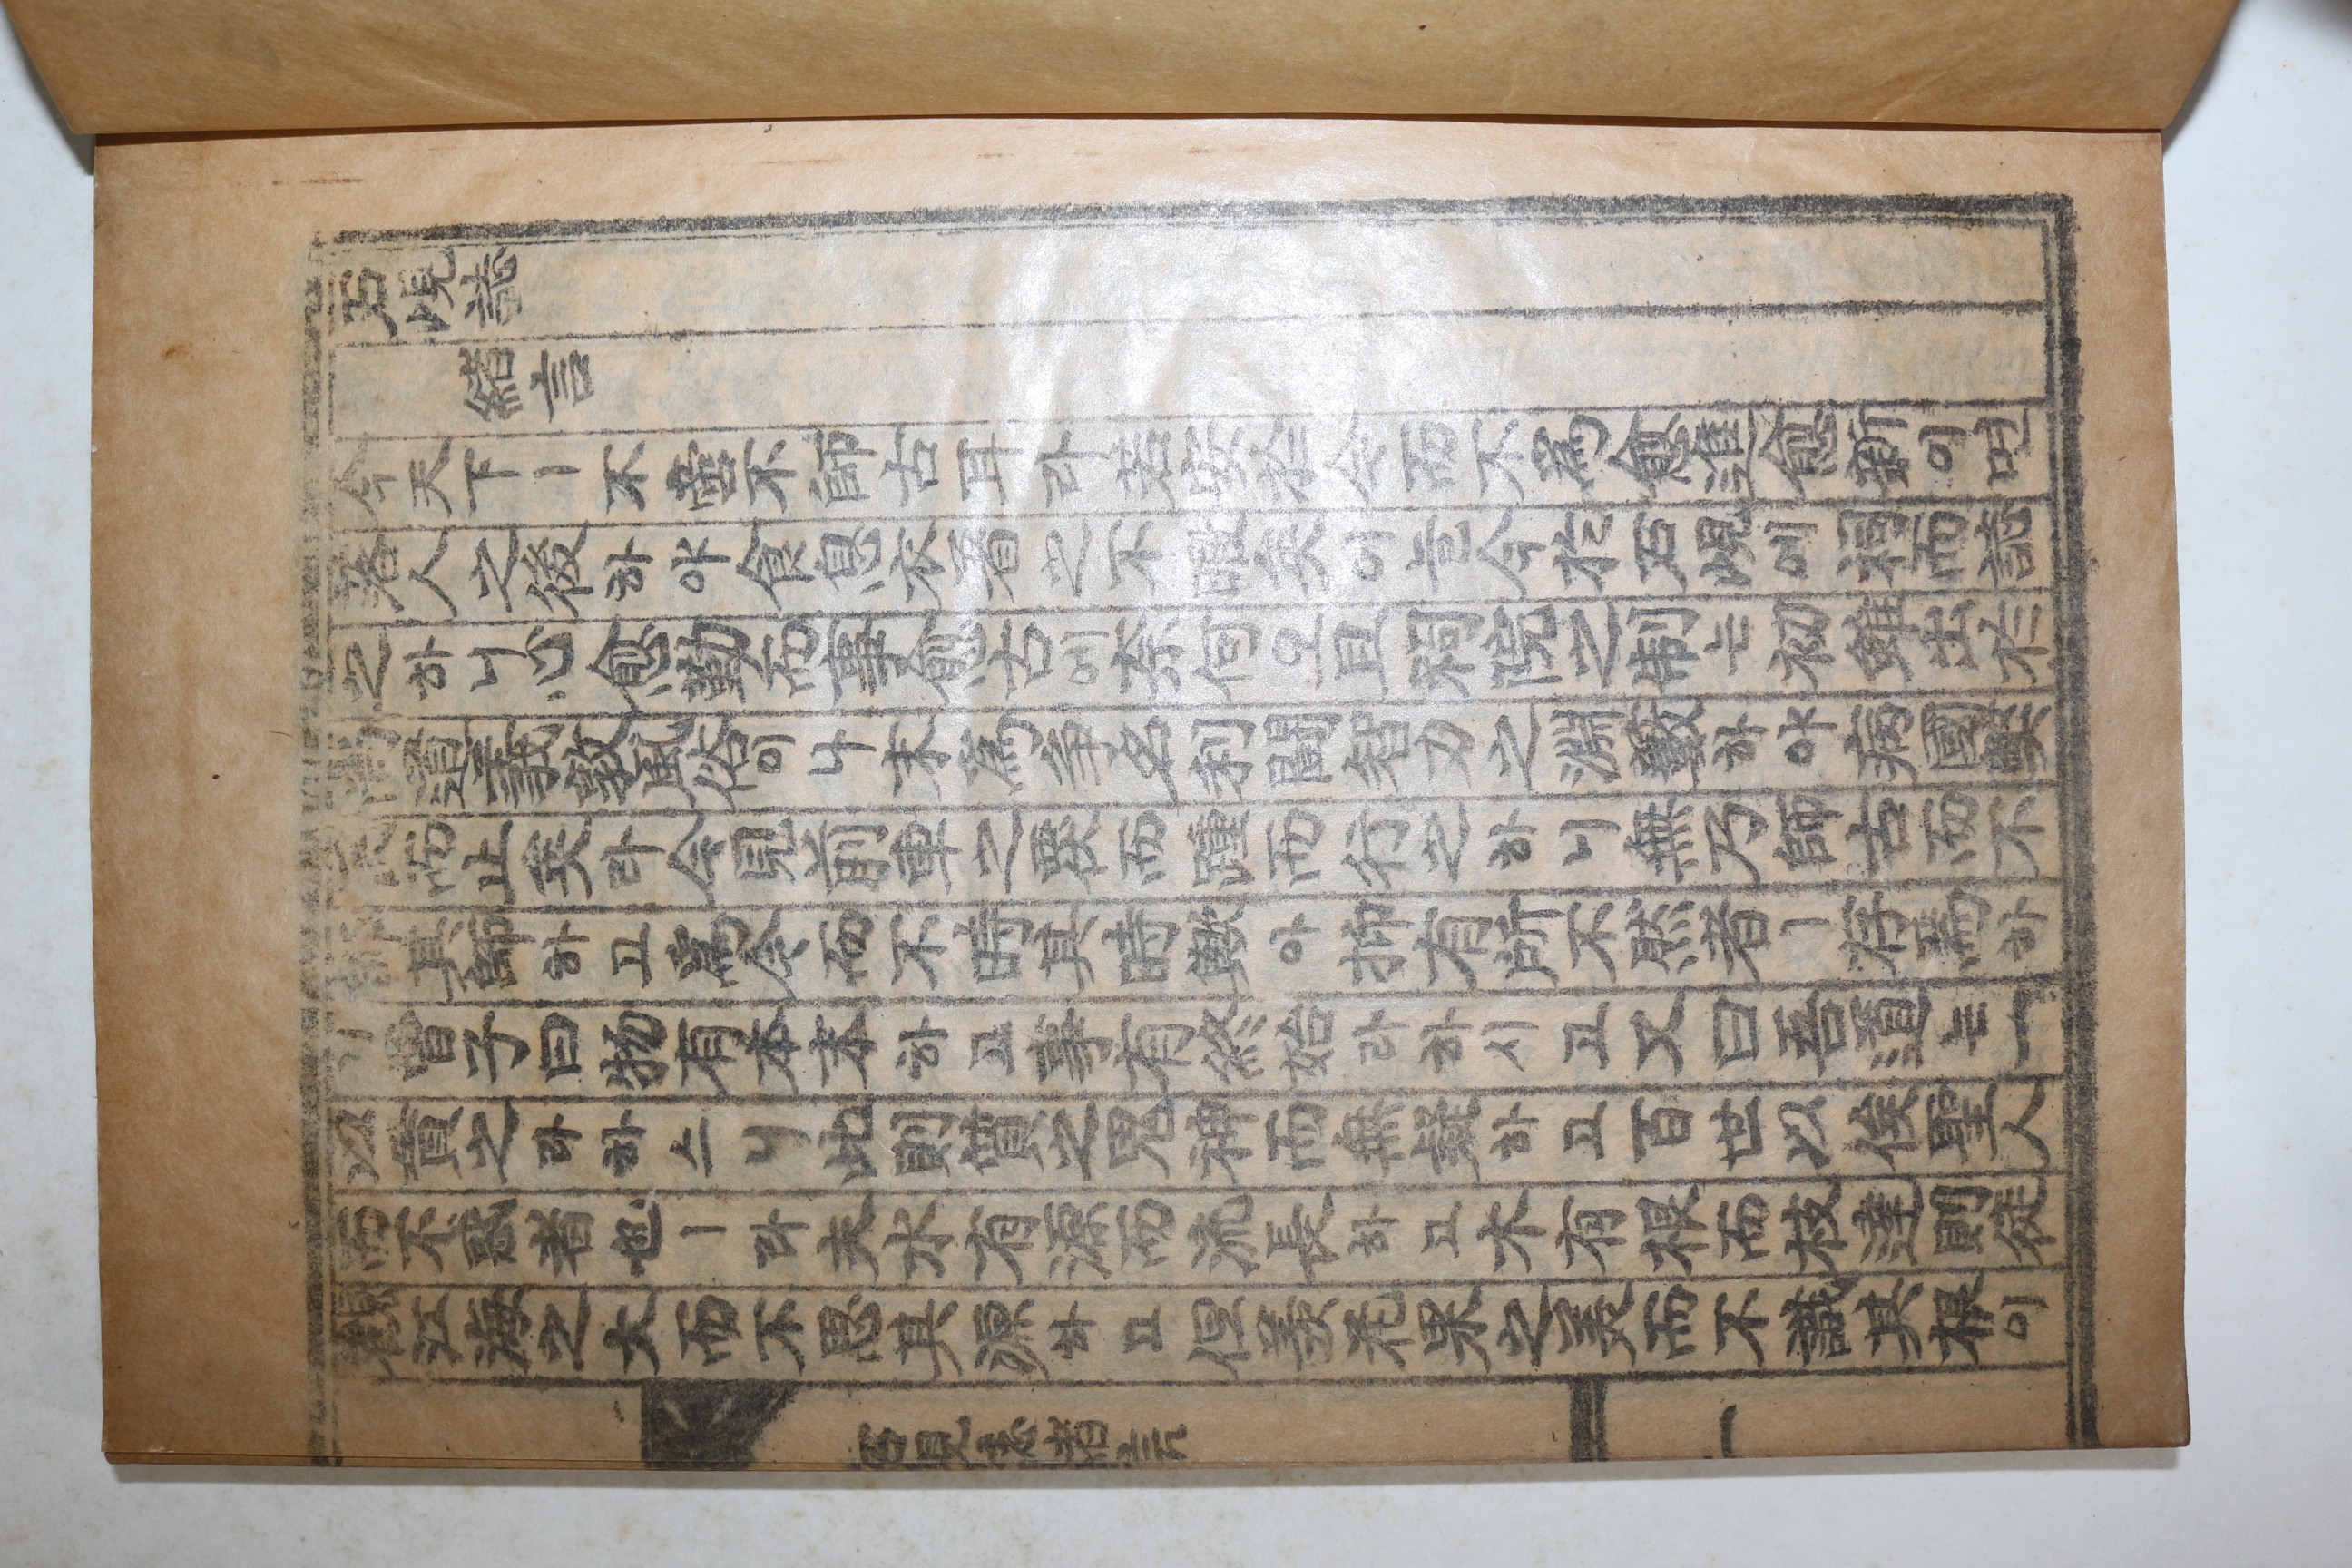 石峴誌
緖言
今天下ㅣ不啻不師古耳라若安於今而不爲愈進愈新이면
落人之後하야食息衣着之不暇矣어늘今於石峴에祠而誌
之하니心愈勤而事愈古에奈何오且祠院之制는初雖出於
尚道義敦風俗이나末爲爭名利鬪智力之淵藪하야病國獘
民而止矣라今見前車之覆而踵而行之하니無乃師古而不
師其師하고爲今而不時其時歟아抑有所不然者ㅣ存焉하
니曾子曰物有本末하고事有終始라하시고又曰吾道는一
以貫之라하스니此則質之鬼神而無疑하고百世以俟聖人
而不惑者也ㅣ라夫水有源而流長하고木有根而枝達則徒
觀江海之大而不思其源하고但羨花果之美而不識其根이
石峴誌緖言
一